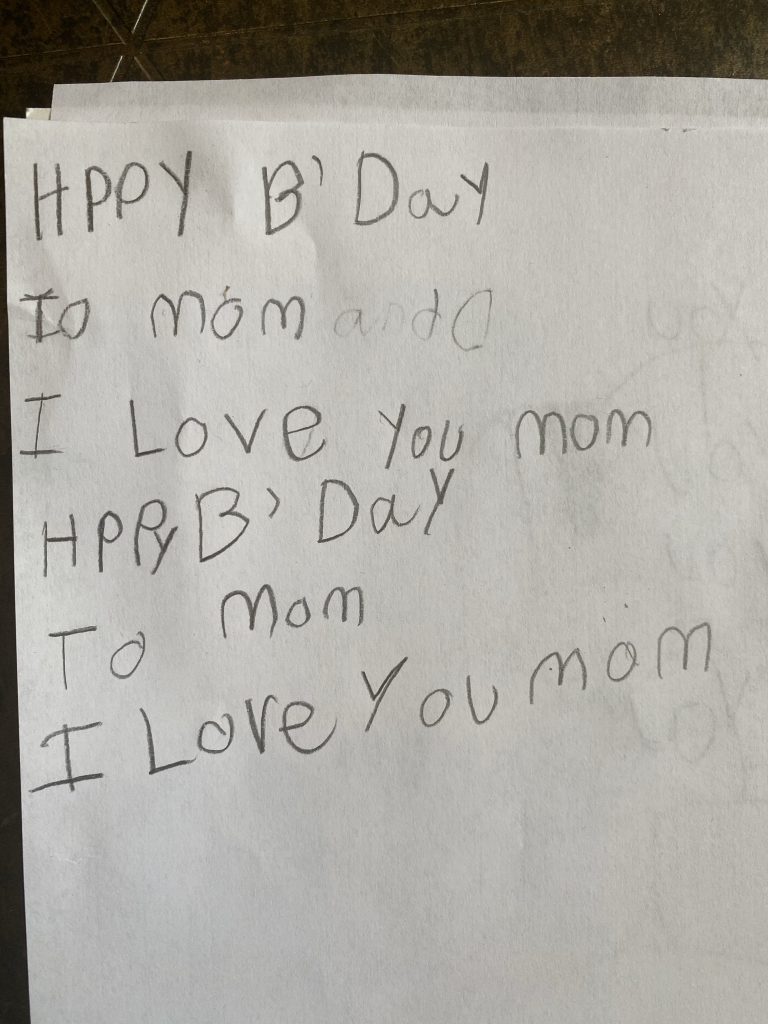 HPPY B' Day
To mom and
I Love You mom
HPPy B' Day
To mom
I Love You mom